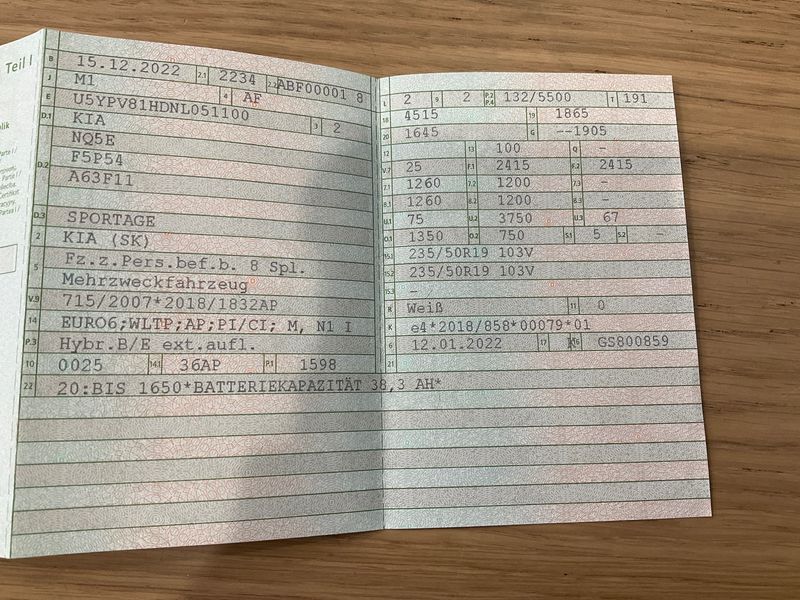 Teil I
B 15.12.2022 2.1 2234 2.2 ABF00001 8
J M1 4 AF
E U5YPV81HDNL051100 3 2
D.1 KIA
D.2 NQ5E
F5P54
A63F11
D.3 SPORTAGE
2 KIA (SK)
5 Fz.z.Pers.bef.b. 8 Spl.
Mehrzweckfahrzeug
V.9 715/2007*2018/1832AP
14 EURO6;WLTP;AP;PI/CI; M, N1 I
P.3 Hybr.B/E ext.aufl.
10 0025 14.1 36AP P.1 1598
22 20:BIS 1650*BATTERIEKAPAZITÄT 38,3 AH*
L 2 9 2 P.2 P.4 132/5500 T 191
18 4515 19 1865
20 1645 G --1905
12 13 100 Q -
V.7 25 F.1 2415 F.2 2415
7.1 1260 7.2 1200 7.3 -
8.1 1260 8.2 1200 8.3 -
U.1 75 U.2 3750 U.3 67
O.1 1350 O.2 750 S.1 5 S.2 -
15.1 235/50R19 103V
15.2 235/50R19 103V
15.3 -
R Weiß 11 0
K e4*2018/858*00079*01
6 12.01.2022 17 16 GS800859
21